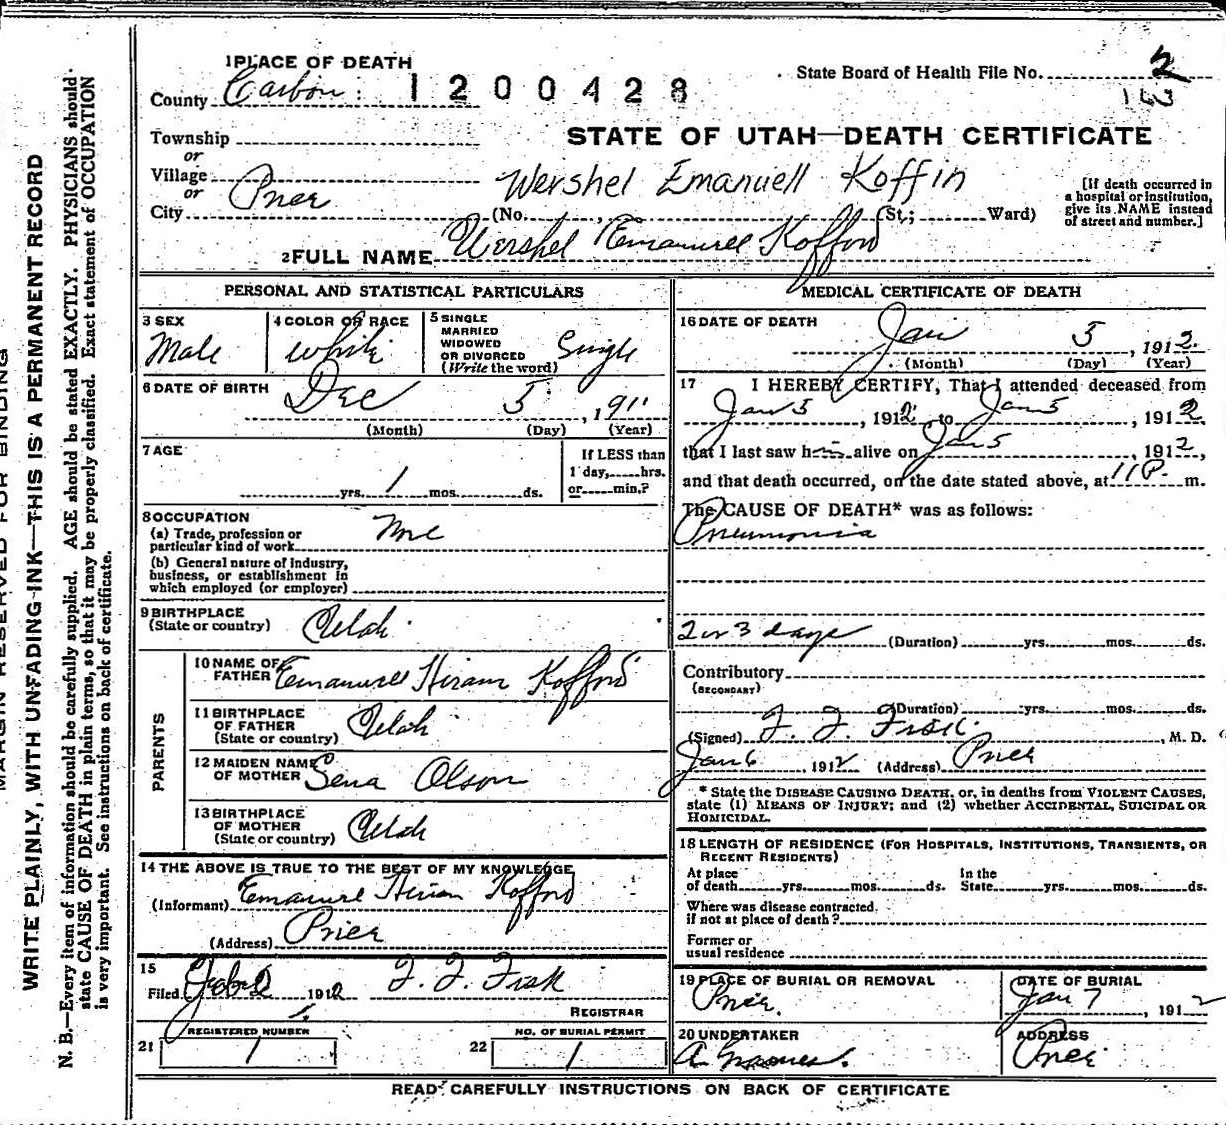 MARGIN RESERVED FOR BINDING
WRITE PLAINLY, WITH UNFADING INK—THIS IS A PERMANENT RECORD
N. B.—Every item of information should be carefully supplied. AGE should be stated EXACTLY. PHYSICIANS should
state CAUSE OF DEATH in plain terms, so that it may be properly classified. Exact statement of OCCUPATION
is very important. See instructions on back of certificate.
1 PLACE OF DEATH
County Carbon
1200428
State Board of Health File No. 2
163
Township
or
Village
or
City Price
STATE OF UTAH—DEATH CERTIFICATE
Wershel Emanuell Koffin
(No. , (St.; Ward)
[If death occurred in
a hospital or institution,
give its NAME instead
of street and number.]
2 FULL NAME Wershel Emanuell Kofford
PERSONAL AND STATISTICAL PARTICULARS
3 SEX
Male
4 COLOR OR RACE
White
5 SINGLE
MARRIED
WIDOWED
OR DIVORCED
(Write the word)
Single
6 DATE OF BIRTH
Dec 5, 1911
(Month) (Day) (Year)
7 AGE
yrs. 1 mos. ds.
If LESS than
1 day, hrs.
or min.?
8 OCCUPATION
(a) Trade, profession or
particular kind of work None
(b) General nature of industry,
business, or establishment in
which employed (or employer)
9 BIRTHPLACE
(State or country) Utah
PARENTS
10 NAME OF
FATHER Emanuell Hiram Kofford
11 BIRTHPLACE
OF FATHER
(State or country) Utah
12 MAIDEN NAME
OF MOTHER Sena Olson
13 BIRTHPLACE
OF MOTHER
(State or country) Utah
14 THE ABOVE IS TRUE TO THE BEST OF MY KNOWLEDGE
(Informant) Emanuel Hiram Kofford
(Address) Price
15
Filed Feb 2 1912 F. F. Fisk
REGISTRAR
21
REGISTERED NUMBER
1
22
NO. OF BURIAL PERMIT
1
MEDICAL CERTIFICATE OF DEATH
16 DATE OF DEATH
Jan 5, 1912
(Month) (Day) (Year)
17 I HEREBY CERTIFY, That I attended deceased from
Jan 5, 1912, to Jan 5, 1912
that I last saw him alive on Jan 5, 1912,
and that death occurred, on the date stated above, at 11 P. m.
The CAUSE OF DEATH* was as follows:
Pneumonia
2 or 3 days (Duration) yrs. mos. ds.
Contributory
(SECONDARY)
(Duration) yrs. mos. ds.
(Signed) F. F. Fisk, M. D.
Jan 6, 1912 (Address) Price
* State the DISEASE CAUSING DEATH, or, in deaths from VIOLENT CAUSES,
state (1) MEANS OF INJURY; and (2) whether ACCIDENTAL, SUICIDAL OR
HOMICIDAL.
18 LENGTH OF RESIDENCE (FOR HOSPITALS, INSTITUTIONS, TRANSIENTS, OR
RECENT RESIDENTS)
At place
of death yrs. mos. ds.
In the
State yrs. mos. ds.
Where was disease contracted
if not at place of death?
Former or
usual residence
19 PLACE OF BURIAL OR REMOVAL
Price.
DATE OF BURIAL
Jan 7, 1912
20 UNDERTAKER
A.
ADDRESS
Price
READ CAREFULLY INSTRUCTIONS ON BACK OF CERTIFICATE